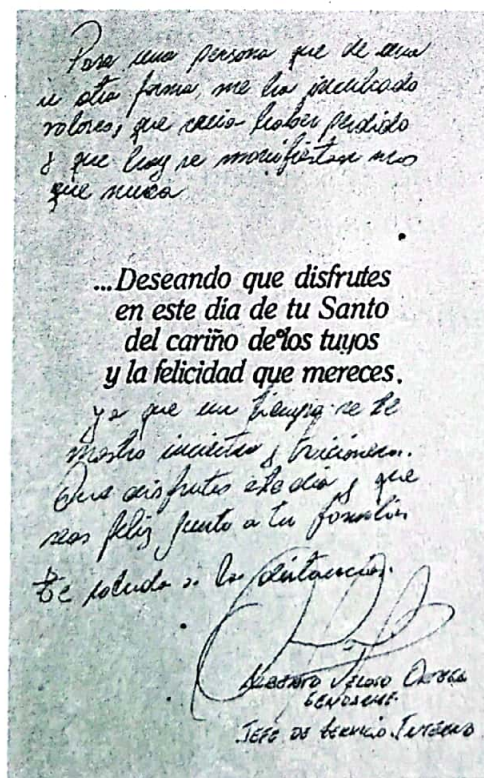 Para una persona que de una
u otra forma, me ha inculcado
valores, que creia haber perdido
y que hoy se manifiestan mas
que nunca
...Deseando que disfrutes
en este día de tu Santo
del cariño de los tuyos
y la felicidad que mereces.
ya que un tiempo se te
mostro incierto y traicionero.
Que disfrutes este dia y que
seas feliz junto a tu familia
te saluda a la distancia.
Alberto Veloso
Gendarme
Jefe de Servicio Interno